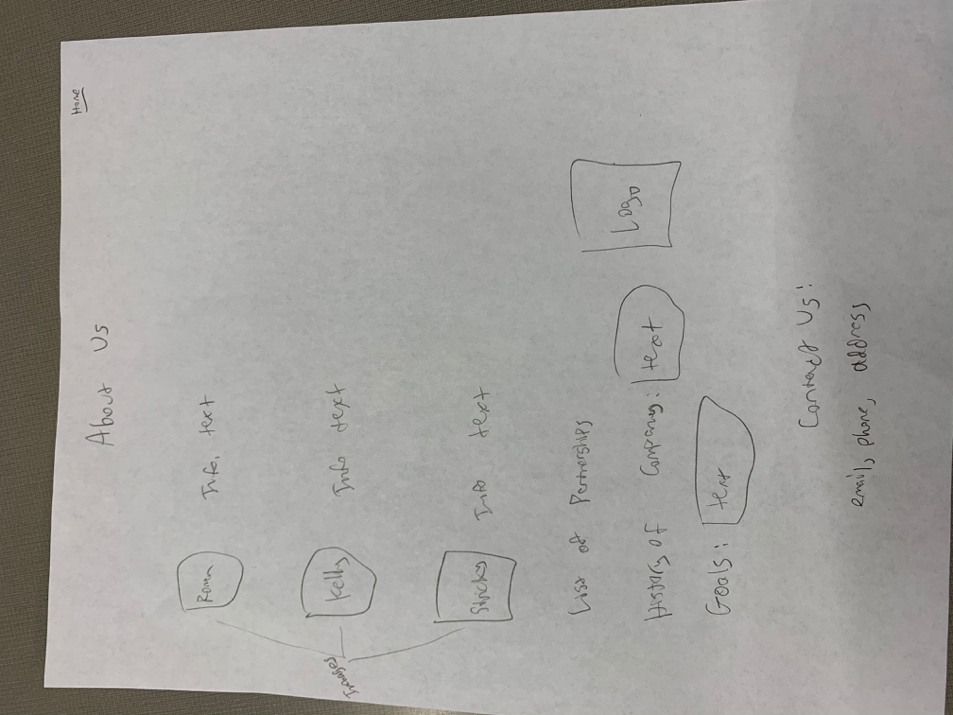 Home
About Us
Info, text
Kelly Info text
Info text
Images
List of Partnerships
Logo
History of Company: text
Goals: text
Contact Us:
email, phone, address